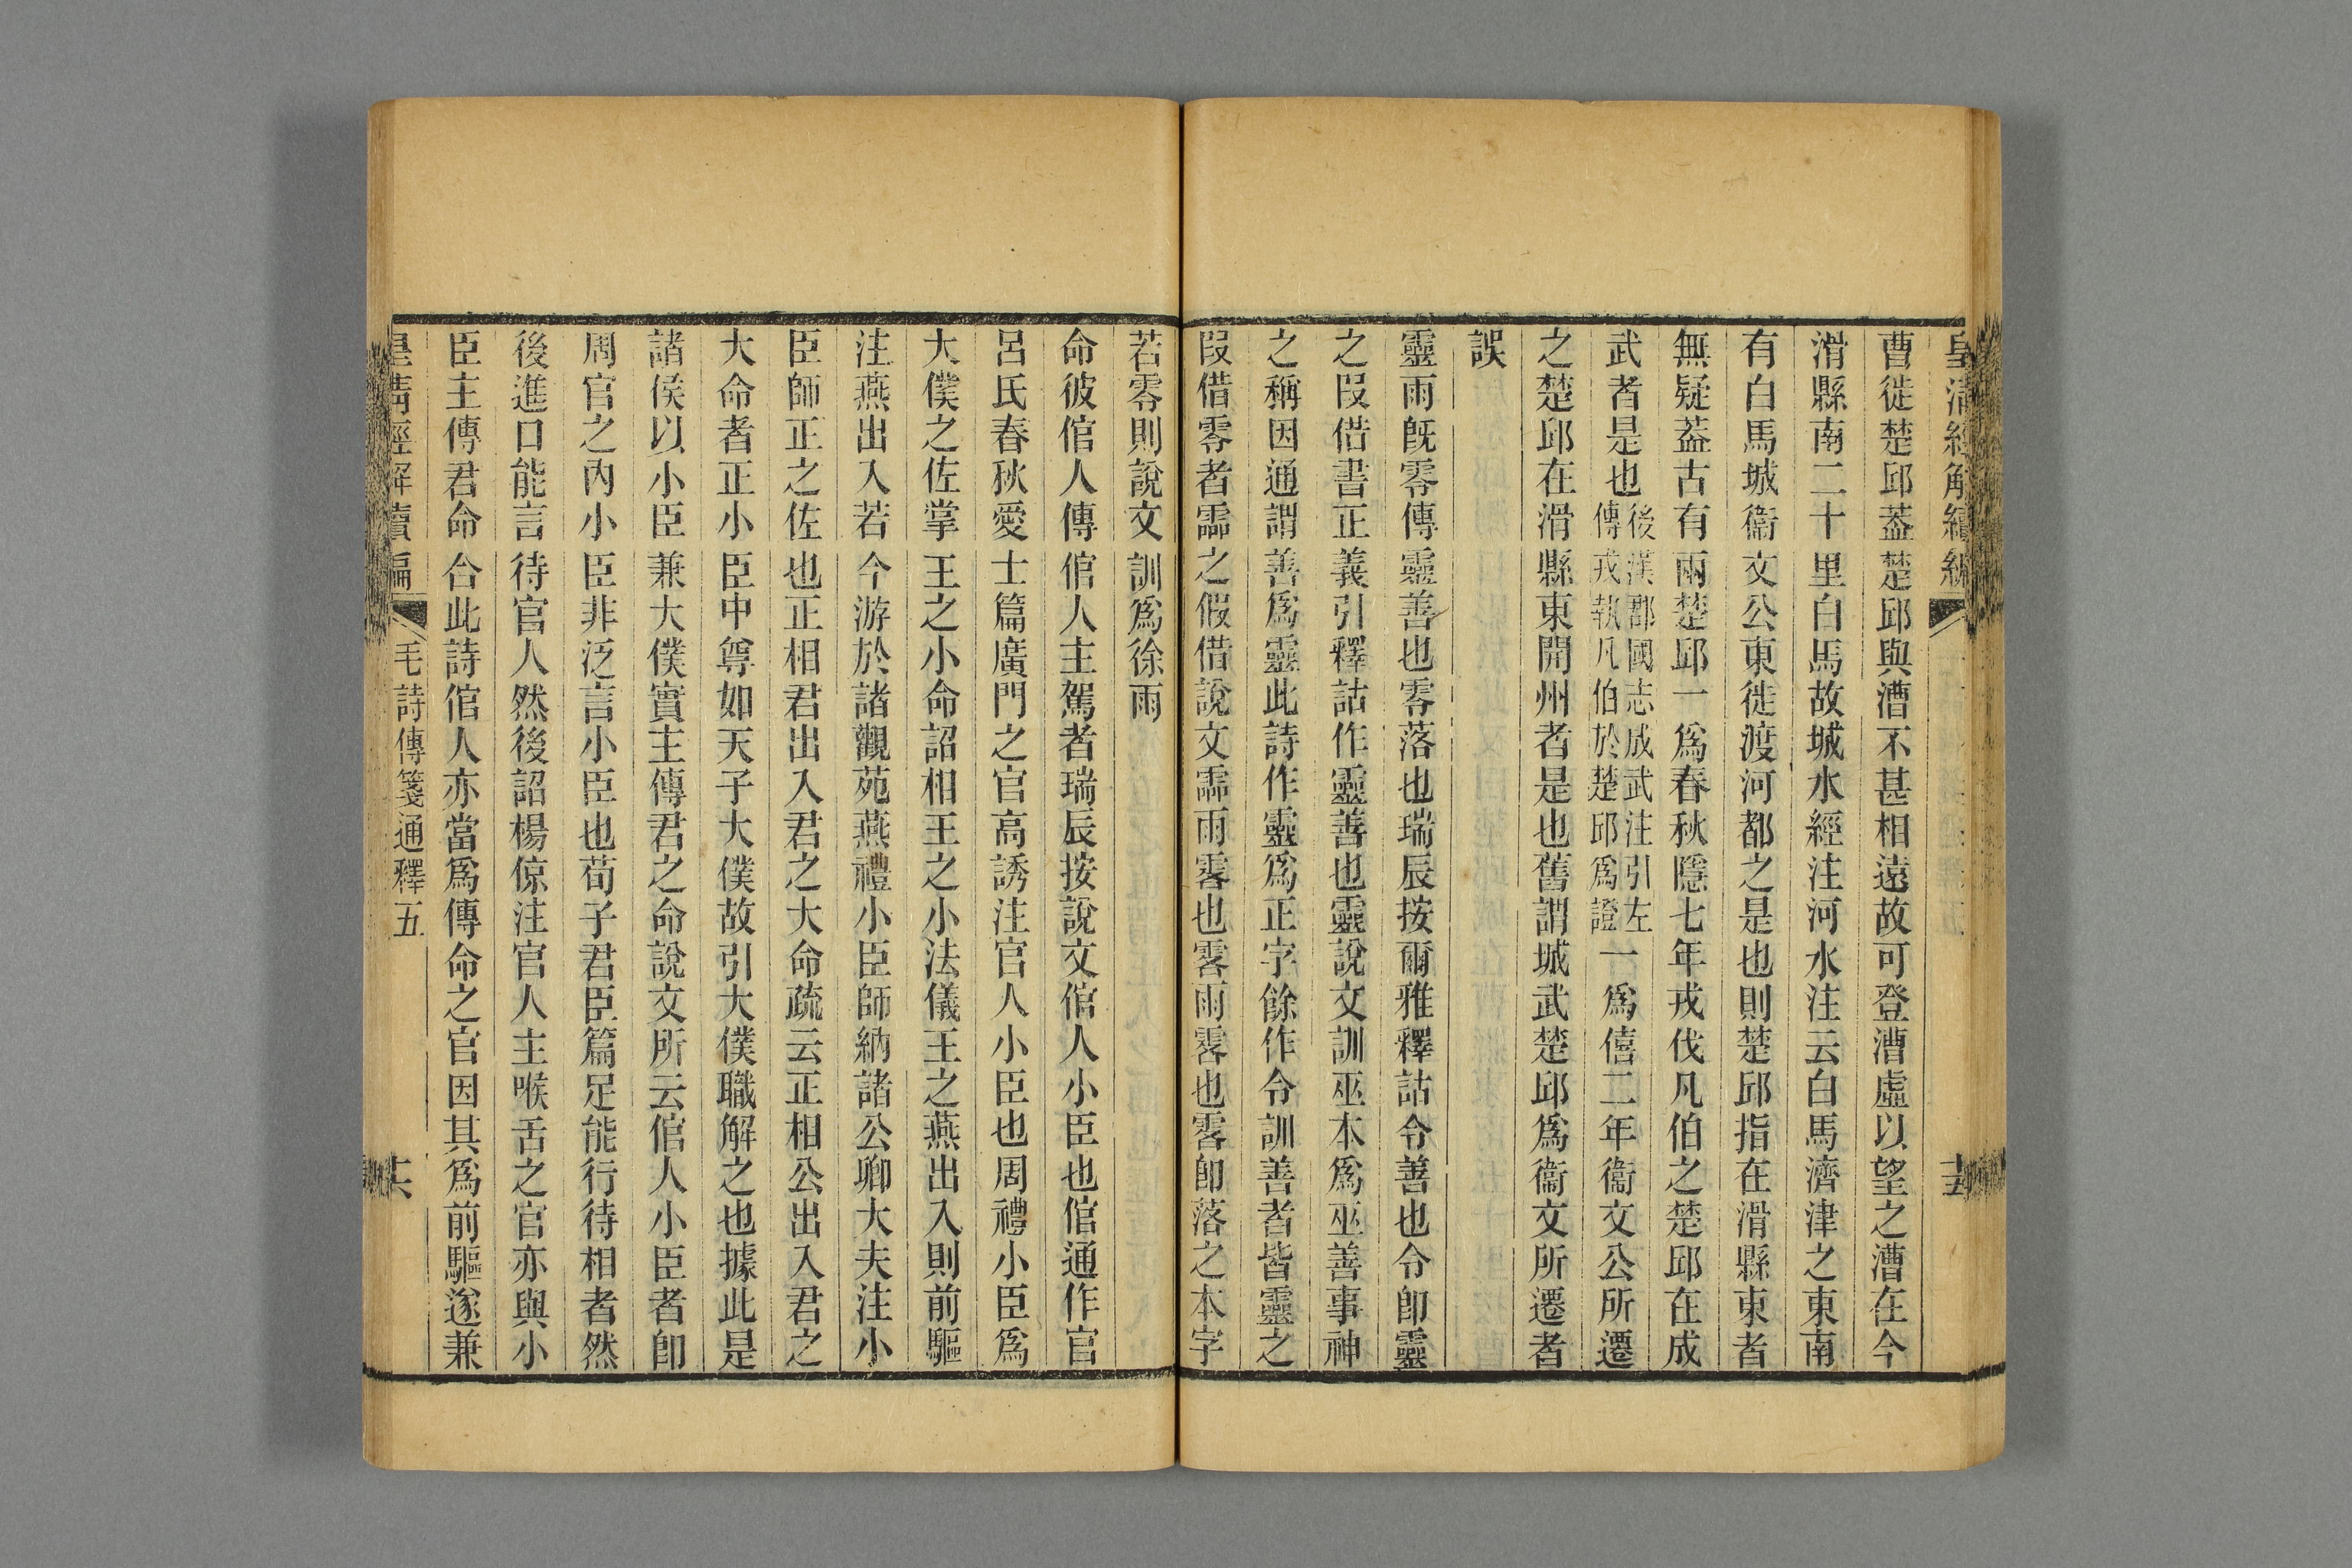 皇清經解續編
十五
曹徙楚邱葢楚邱與漕不甚相遠故可登漕虛以望之漕在今
滑縣南二十里白馬故城水經注河水注云白馬濟津之東南
有白馬城衞文公東徙渡河都之是也則楚邱指在滑縣東者
無疑葢古有兩楚邱一爲春秋隱七年戎伐凡伯之楚邱在成
武者是也後漢郡國志成武注引左傳戎執凡伯於楚邱爲證一爲僖二年衞文公所遷
之楚邱在滑縣東開州者是也舊謂城武楚邱爲衞文所遷者
誤
靈雨旣零傳靈善也零落也瑞辰按爾雅釋詁令善也令卽靈
之叚借書正義引釋詁作靈善也靈說文訓巫本爲巫善事神
之稱因通謂善爲靈此詩作靈爲正字餘作令訓善者皆靈之
叚借零者霝之假借說文霝雨零也零雨零也零卽落之本字
若零則說文訓爲徐雨
命彼倌人傳倌人主駕者瑞辰按說文倌人小臣也倌通作官
呂氏春秋愛士篇廣門之官高誘注官人小臣也周禮小臣爲
大僕之佐掌王之小命詔相王之小法儀王之燕出入則前驅
注燕出入若今游於諸觀苑燕禮小臣師納諸公卿大夫注小
臣師正之佐也正相君出入君之大命疏云正相公出入君之
大命者正小臣中尊如天子大僕故引大僕職解之也據此是
諸侯以小臣兼大僕實主傳君之命說文所云倌人小臣者卽
周官之內小臣非泛言小臣也荀子君臣篇足能行待相者然
後進口能言待官人然後詔楊倞注官人主喉舌之官亦與小
臣主傳君命合此詩倌人亦當爲傳命之官因其爲前驅遂兼
皇清經解續編
毛詩傳箋通釋五
十六